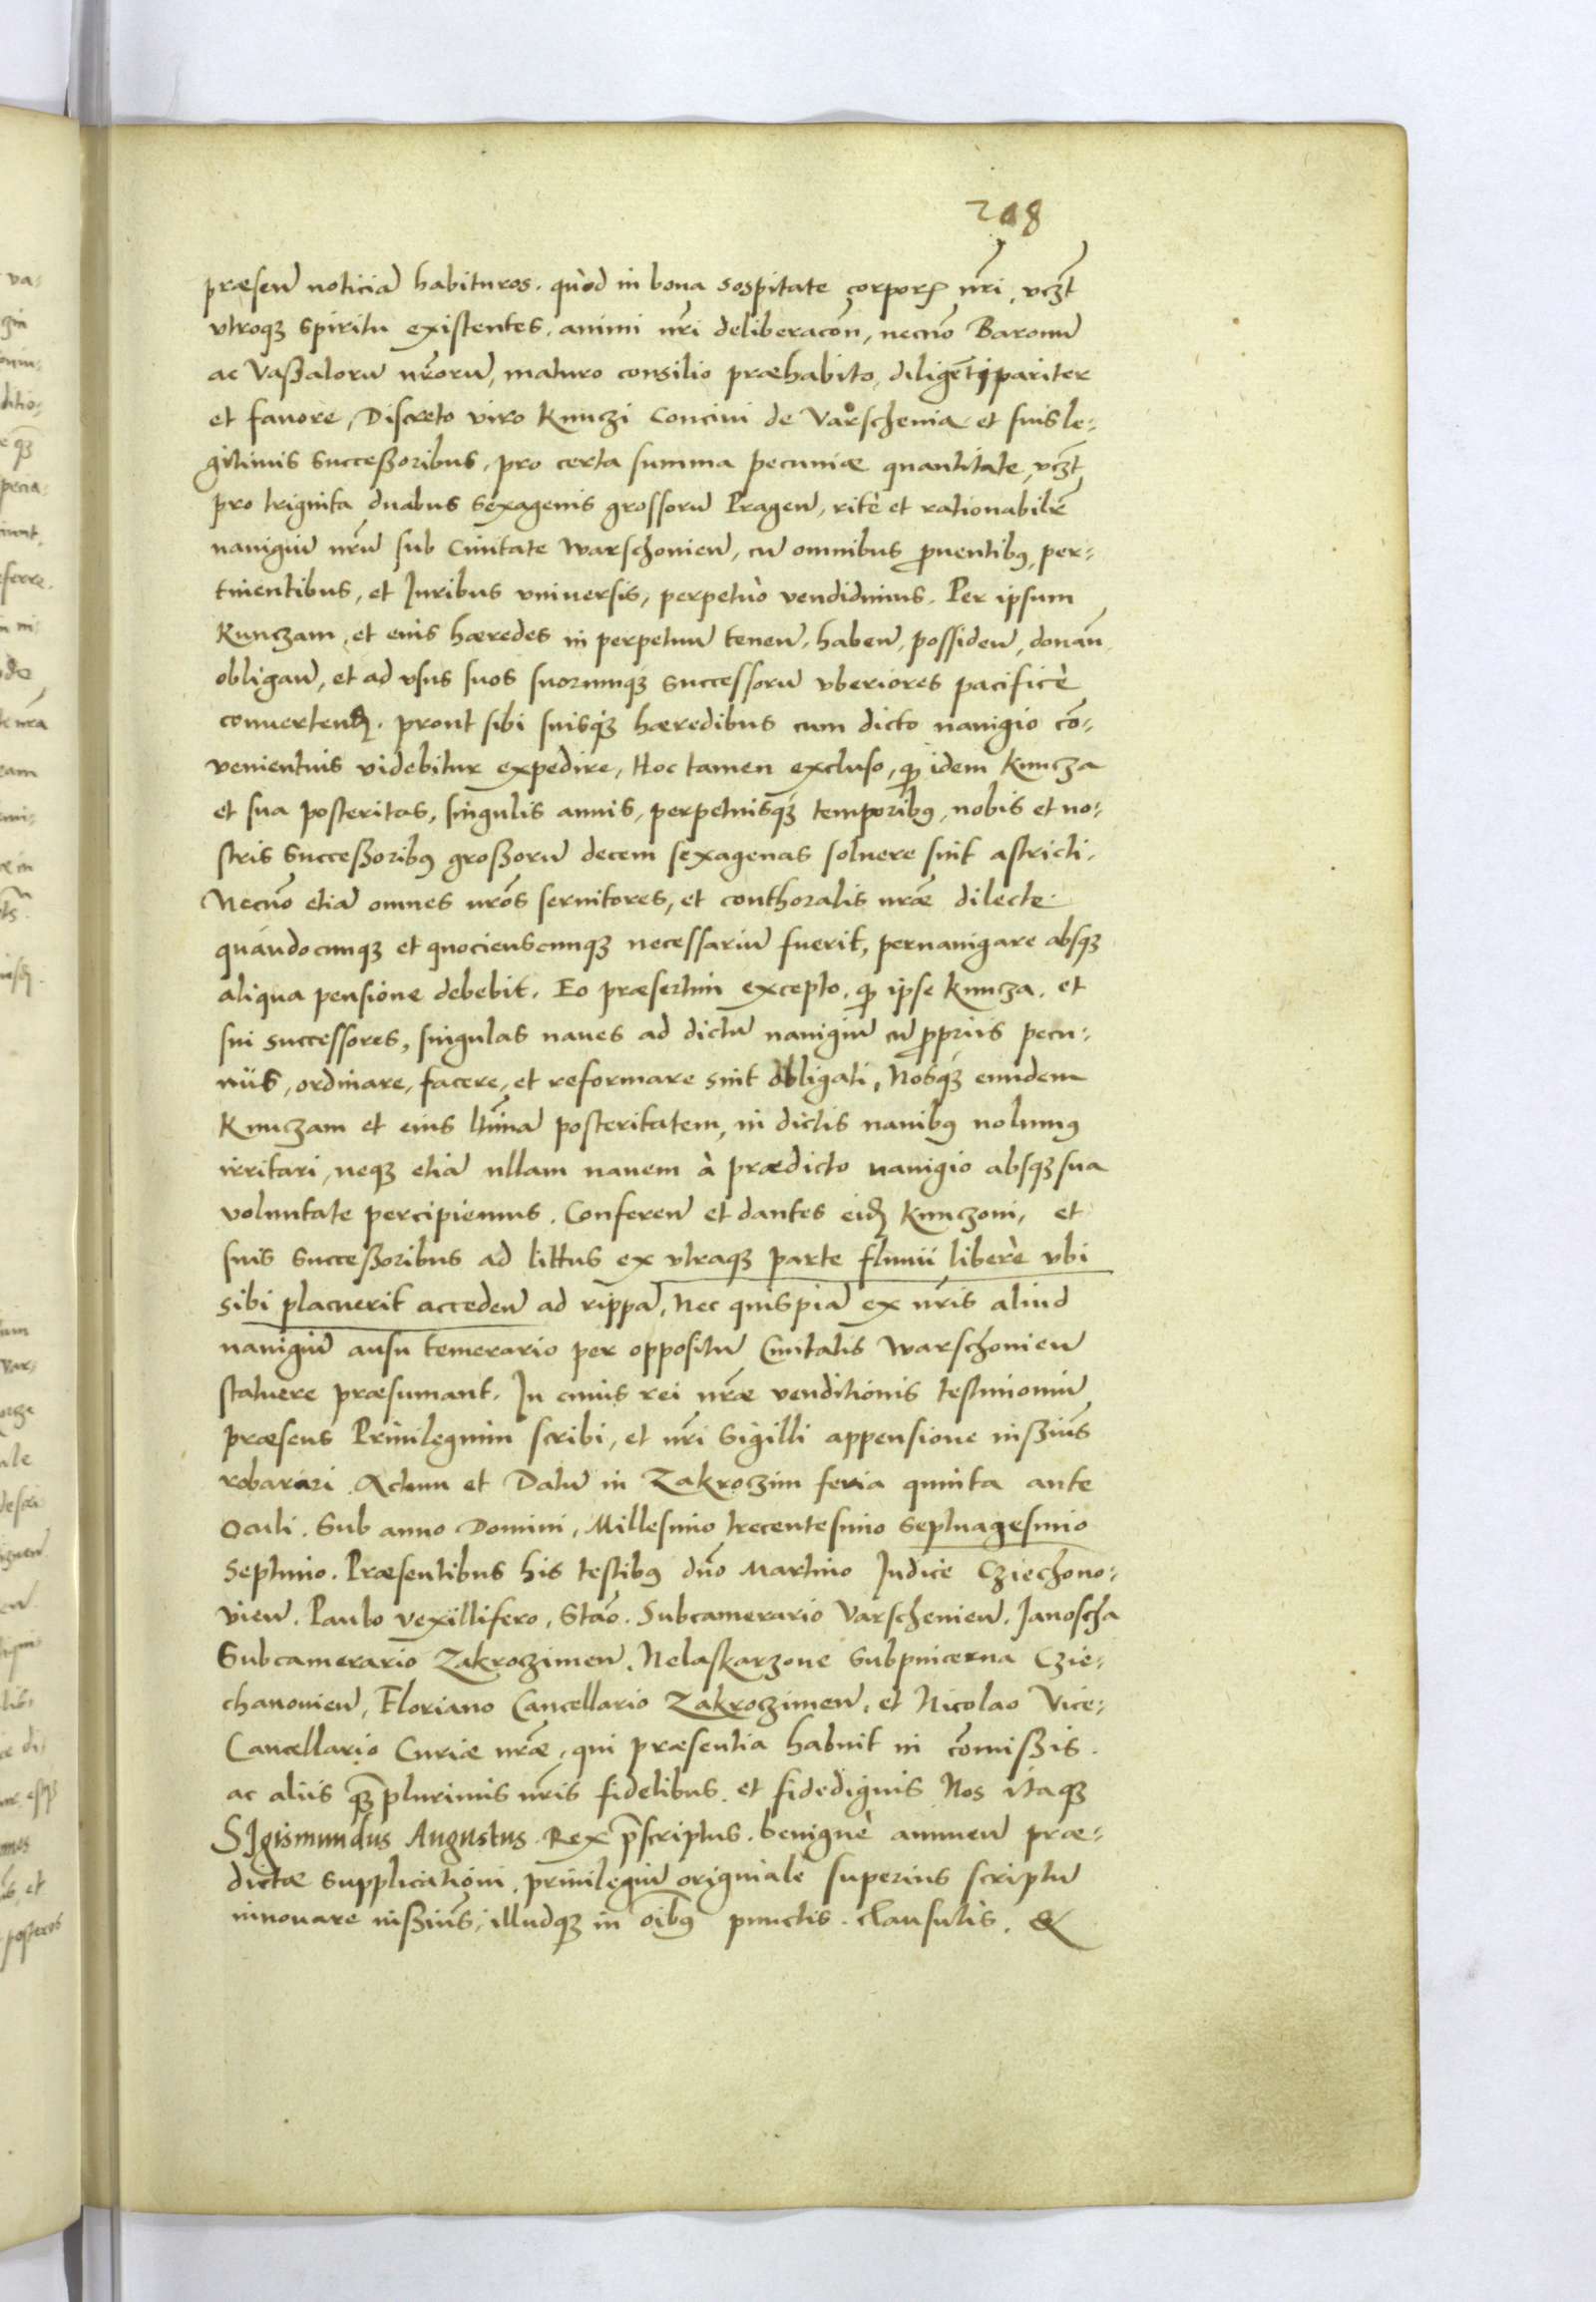 208
præsen̄ noticiā habituros. quòd in bona sospitate corporꝭ nr̄i, vcꝫt
vtroqꝫ spiritu existentes. animi nr̄i deliberacōn, necnō Baronū
ac Vaßalorū nr̄orū, maturo consilio præhabito, diligēti pariter
et fauore, Discreto viro Kunczi Conciui de Varschenia et suis le-
gitimis Succeßoribus, pro certa summa pecuniæ quantitate, vcꝫt
pro triginta duabus sexagenis grossorū Pragen̄, ritè et rationabilr̄
nauigiū nr̄m̄ sub Ciuitate Warschonien̄, cū omnibus ꝓuentibꝰ, per-
tinentibus, et Juribus vniuersis, perpetuò vendidimus. Per ipsum
Kunczam, et eius hæredes in perpetuū tenen̄, haben̄, possiden̄, donan̄
obligan̄, et ad vsus suos suorumqꝫ successorū vberiores pacificè
conuertenđ. prout sibi suisqꝫ hæredibus cum dicto nauigio cō-
uenientius videbitur expedire, Hoc tamen excluso, ꝙ idem Kuncza
et sua posteritas, singulis annis, perpetuisqꝫ temporibꝰ, nobis et no-
stris Succeßoribꝰ großorū decem sexagenas soluere sint astricti.
Necnō etiā omnes nr̄os seruitores, et conthoralis nr̄æ dilecte
quandocunqꝫ et quocienscunqꝫ necessariū fuerit, pernauigare absqꝫ
aliqua pensione debebit. Eo præsertim excepto, ꝙ ipse Kuncza, et
sui successores, singulas naues ad dictū nauigiū cū ꝓprijs pecu-
niis, ordinare, facere, et reformare sint obligati, Nosqꝫ eundem
Kunczam et eius ltimā posteritatem, in dictis nauibꝰ nolumꝰ
irritari, neqꝫ etiā ullam nauem à prædicto nauigio absqꝫ sua
voluntate percipiemus. Conferen̄ et dantes eiđ Kunczoni, et
suis Succeßoribus ad littus ex vtraqꝫ parte fluuii libere vbi
sibi placuerit acceden̄ ad rippā, Nec quispiā ex nr̄is aliud
nauigiū ausu temerario per oppositū Ciuitatis Warschonien̄
statuere præsumant. In cuius rei nr̄æ venditionis testimoniū
præsens Priuilegium scribi, et nr̄i Sigilli appensione iußim̄s
robarari. Actum et Datū in Zakroczim feria quinta ante
Oculi. Sub anno Domini, Millesimo trecentesimo septuagesimo
Septimo. Præsentibus his testibꝰ dn̄o Martino Judice Cziechono-
uien̄. Paulo vexillifero, Stāo. Subcamerario Varschenien̄. Janoscha
Subcamerario Zakroczimen̄, Nelaskarzone Subpincerna Czie-
chanouien̄, Floriano Cancellario Zakroczimen̄, et Nicolao Vice-
Cancellario Curiæ nr̄æ, qui præsentia habuit in cōmißis.
ac aliis qꝫ plurimis nr̄is fidelibus, et fidedignis Nos itaqꝫ
SIgismundus Augustus Rex p̄scriptus. benignè annuen̄ præ-
dictæ supplicationi, priuilegiū originale superius scriptū
innouare iußim̄s, illudqꝫ in oībꝰ punctis. clausulis. &